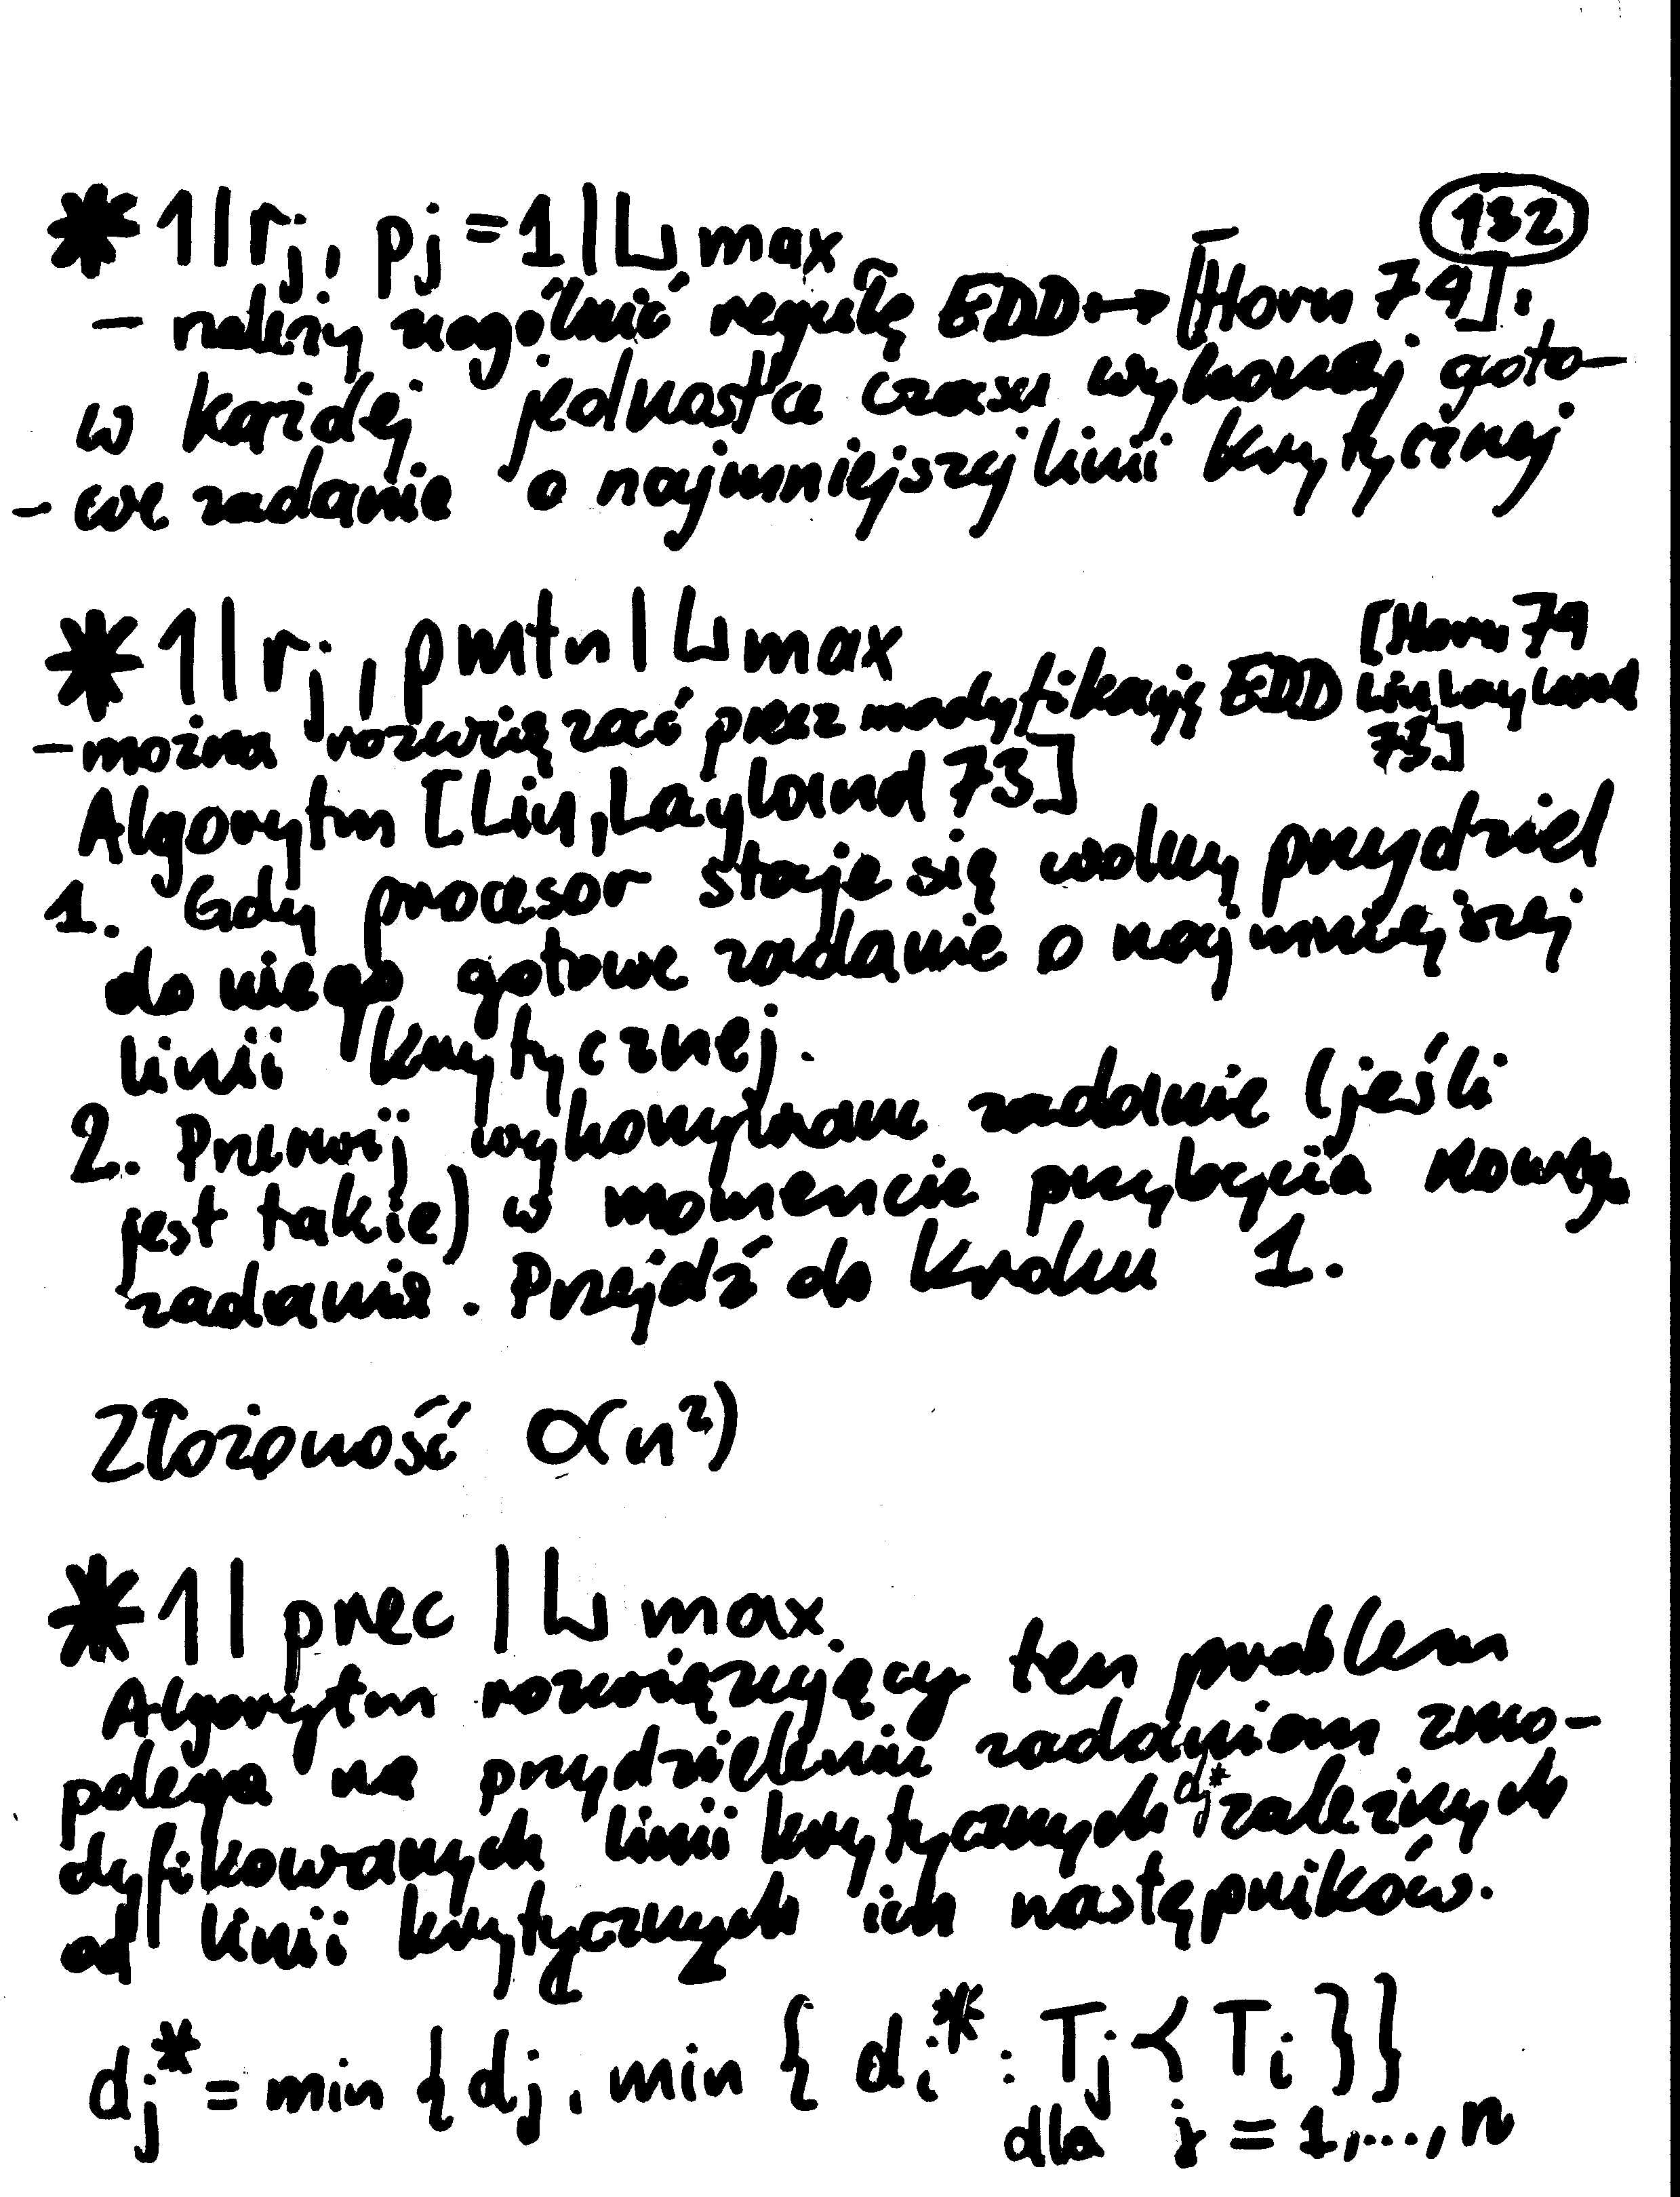 132
* 1 | rj, pj = 1 | Lmax
- należy uogólnić regułę EDD ↦ [Horn 74]:
w każdej jednostce czasu wykonaj goto-
- we zadanie o najmniejszej linii krytycznej
* 1 | rj, pmtn | Lmax
[Horn 74
Liu, Layland
73]
- można rozwiązać przez modyfikację EDD
Algorytm [Liu, Layland 73]
1. Gdy procesor staje się wolny przydziel
do niego gotowe zadanie o najmniejszej
linii krytycznej.
2. Przerwij wykonywane zadanie (jeśli
jest takie) w momencie przybycia nowego
zadania. Przejdź do kroku 1.
Złożoność O(n²)
* 1 | prec | Lmax
Algorytm rozwiązujący ten problem
polega na przydzieleniu zadaniom zmo-
dyfikowanych linii krytycznych dj* zależnych
od linii krytycznych ich następników.
dj* = min {dj, min { di* : Tj ≺ Ti }}
dla j = 1,...,n